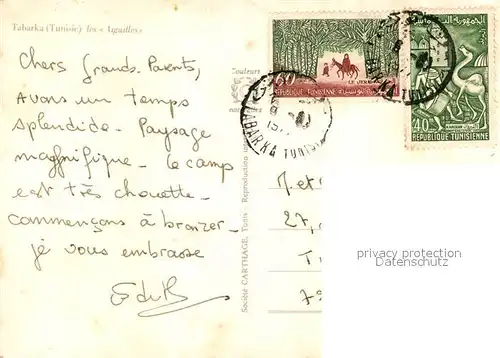 Tabarka (Tunisie) les « Aiguilles »
Chers Grands-Parents,
Avons un temps
splendide. Paysage
magnifique. le camp
est très chouette.
Commençons à bronzer.
je vous embrasse
Couleurs
Société CARTHAGE, Tunis Reproduction
60
REPUBLIQUE TUNISIENNE
40
REPUBLIQUE TUNISIENNE
TABARKA TUNISIE
M. et
27,
T
7
privacy protection
Datenschutz